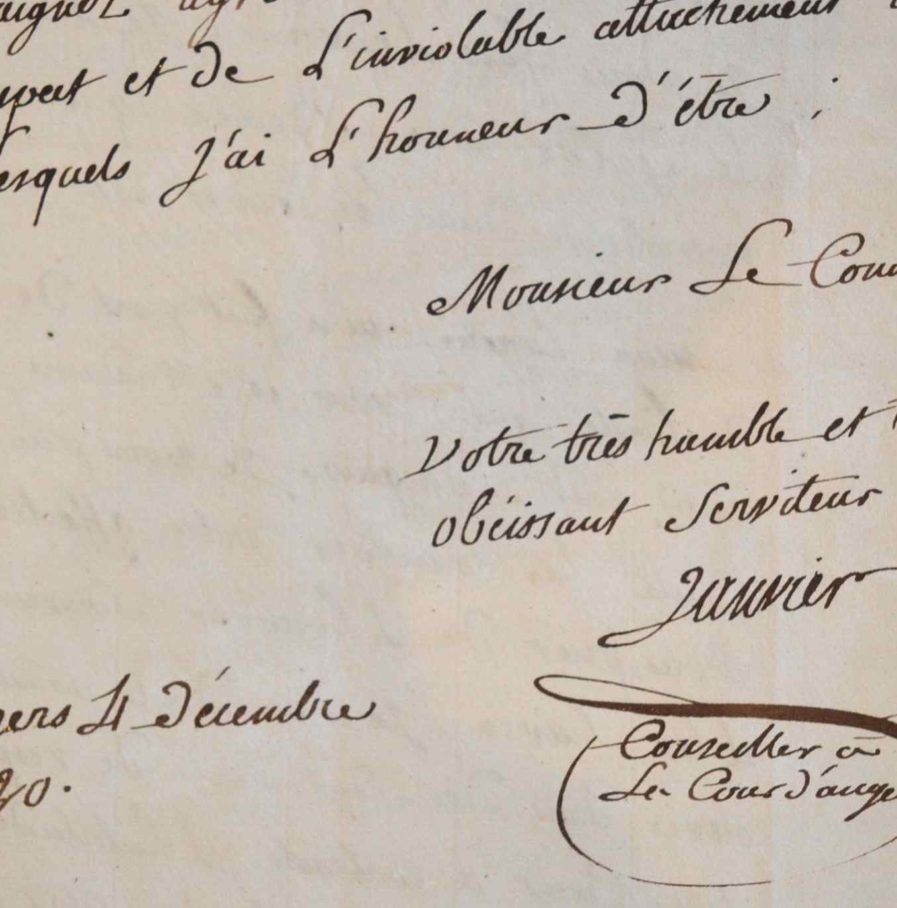 aignez agr
spect et de L'inviolable attachement
lesquels J'ai L'honneur d'être ;
Monsieur Le Com
Votre très humble et t
obéissant Serviteur
Janvier
gers 4 décembre
20.
Conseiller à
La Cour d'ange